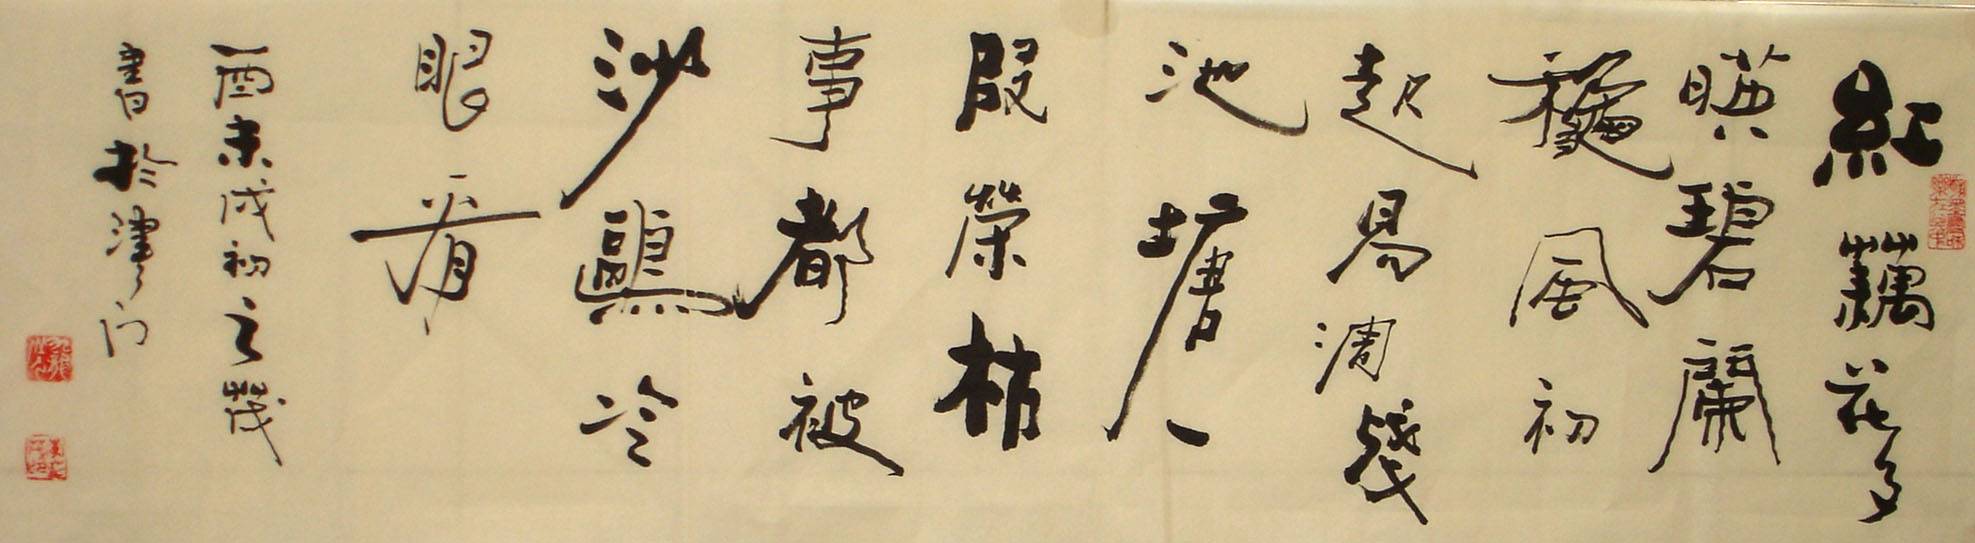 紅藕花多
暎碧闌
龝風初
起易凋殘
池塘一
段榮枯
事都被
沙鷗冷
眼看
酉末戌初之歲
書於津門